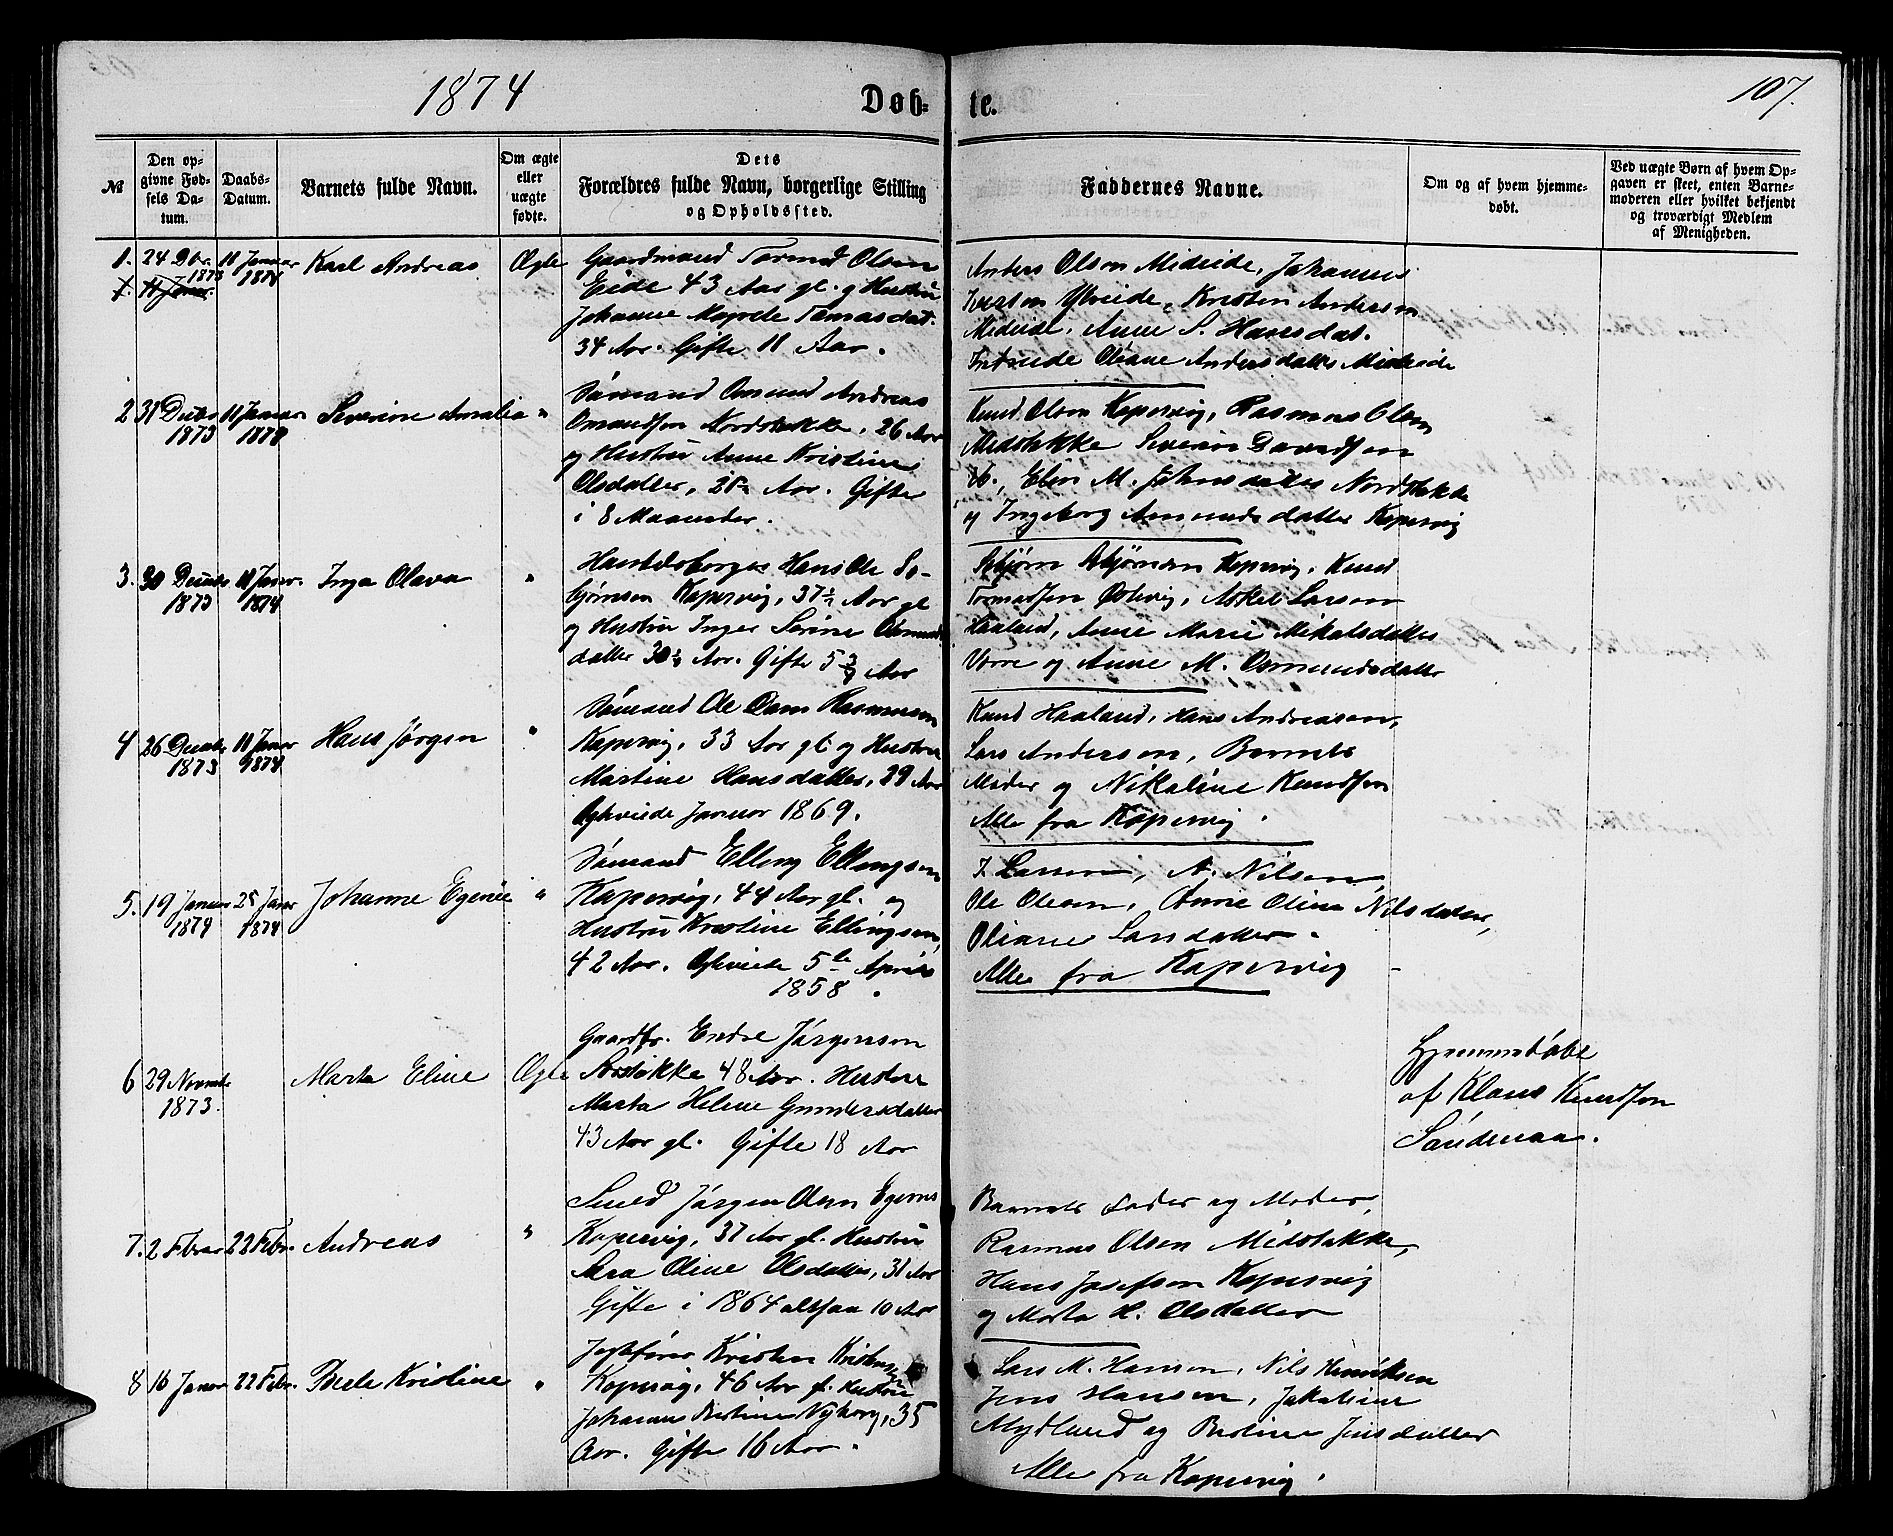 1874
Døb-
te.
107.
№
Den op-
givne Fød-
sels Da-
tum.
Daabs-
Datum.
Barnets fulde Navn.
Om ægte
eller
uægte
fødte.
Dets
Forældres fulde Navn, borgerlige Stilling
og Opholdssted.
Faddernes Navne.
Om og af hvem hjemme-
døbt.
Ved uægte Børn af hvem Op-
gaven er skeet, enten Barne-
moderen eller hvilket bekjendt
og troværdigt Medlem
af Menigheden.
1. 24 Dbr. 1873
11 Januar 1874
Karl Andreas
Ægte
Gaardmand Tormod Olsen
Eide 43 Aar gl. og Hustru
Johanne Tomasdat.
34 Aar. Gifte 11 Aar.
Anders Olson Mideide, Johannes
Kristen Anderson
Mideide, Anne S. Hansdat.
Oliane Andersdatter Mideide
2 31 Decbr 1873
11 Januar 1874
Severine Amalia
"
Sømand Omund Andreas
Omundsen Nordstokke, 26 Aar
og Hustru Anne Kristine
Olsdatter, 25 Aar. Gifte
i 8 Maaneder.
Knud Olsen Kopervig, Rasmus Olsen
Midstokke Severin Davidsen
Elen M. Johnsdatter Nordstokke
og Ingeborg Amundsdatter Kopervig
3. 30 Decbr 1873
11 Januar 1874
Inga Olava
"
Handelsborger Hans Ole
Kopervig, 37½ Aar gl
og Hustru Inger Serine
datter 30½ Aar. Gifte 5 Aar
Kopervig, Knud
Tormodsen Østevig, Askel Larsen
Haaland, Anne Marie Mikalsdatter
Vorre og Anne M. Osmundsdatter
4 26 Decbr 1873
11 Januar 1874
Hans Jørgen
"
Sømand Ole Dam Rasmussen
Kopervig, 33 Aar gl. og Hustru
Martine Hansdatter, 29 Aar
Egteviede Januar 1869.
Knud Haaland, Hans Andreasen,
Lars Anderson, Barnets
Moder og Nikoline Knudsen
Alle fra Kopervig.
5. 19 Januar 1874
25 Januar 1874
Johanne
"
Sømand Elling Ellingsen
Kopervig, 44 Aar gl. og
Hustru Kristine Ellingsen,
42 Aar. Egteviede 5te April
1858.
Larsen, A. Nilsen,
Ole Olsen, Anne Oline Nilsdatter,
Oliane Larsdatter.
Alle fra Kopervig
6 29 Novmbr 1873.
Marta Eline
Ægte
Gaardbr. Endre Jørgensen
48 Aar. Hustru
Marta Helene Gundersdatter
43 Aar gl. Gifte 18 Aar
Hjemmedøbt
af Klaus Knudsen
7. 2 Febr
22 Febr.
Andreas
"
Smed Jørgen Olsen
Kopervig, 37 Aar gl. Hustru
Sara Oline Olsdatter, 31 Aar
Gifte i 1864 altsaa 10 Aar
Barnets Fader og Moder,
Rasmus Olsen Midstokke,
Hans Josefson Kopervig
og Marta H. Olsdatter
8 16 Januar
22 Febr.
Kristine
"
Kristen Kristensen
Kopervig, 46 Aar gl. Hustru
Johanne Nyborg, 35
Aar. Gifte 16 Aar.
Lars M. Hansen, Nils Henriksen
Jens Hansen, Jakobine
Mydland og Jensdatter
Alle fra Kopervig.